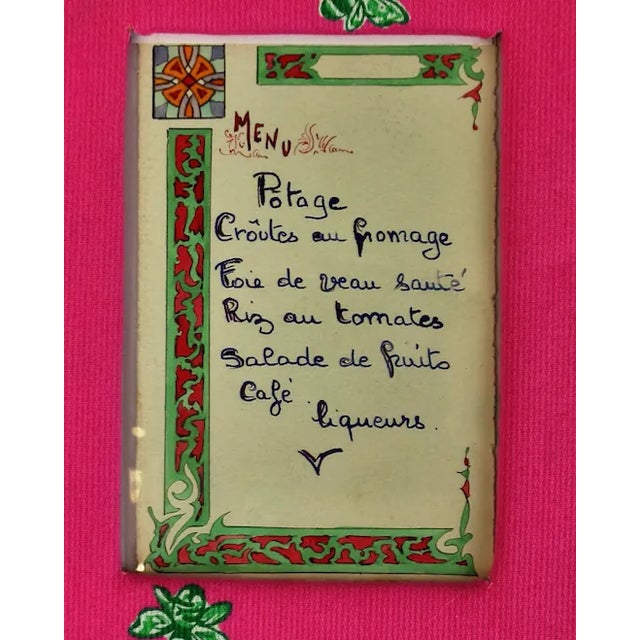 MENU
Potage
Croûtes au fromage
Foie de veau sauté
Riz au tomates
Salade de fruits
Café.
liqueurs.